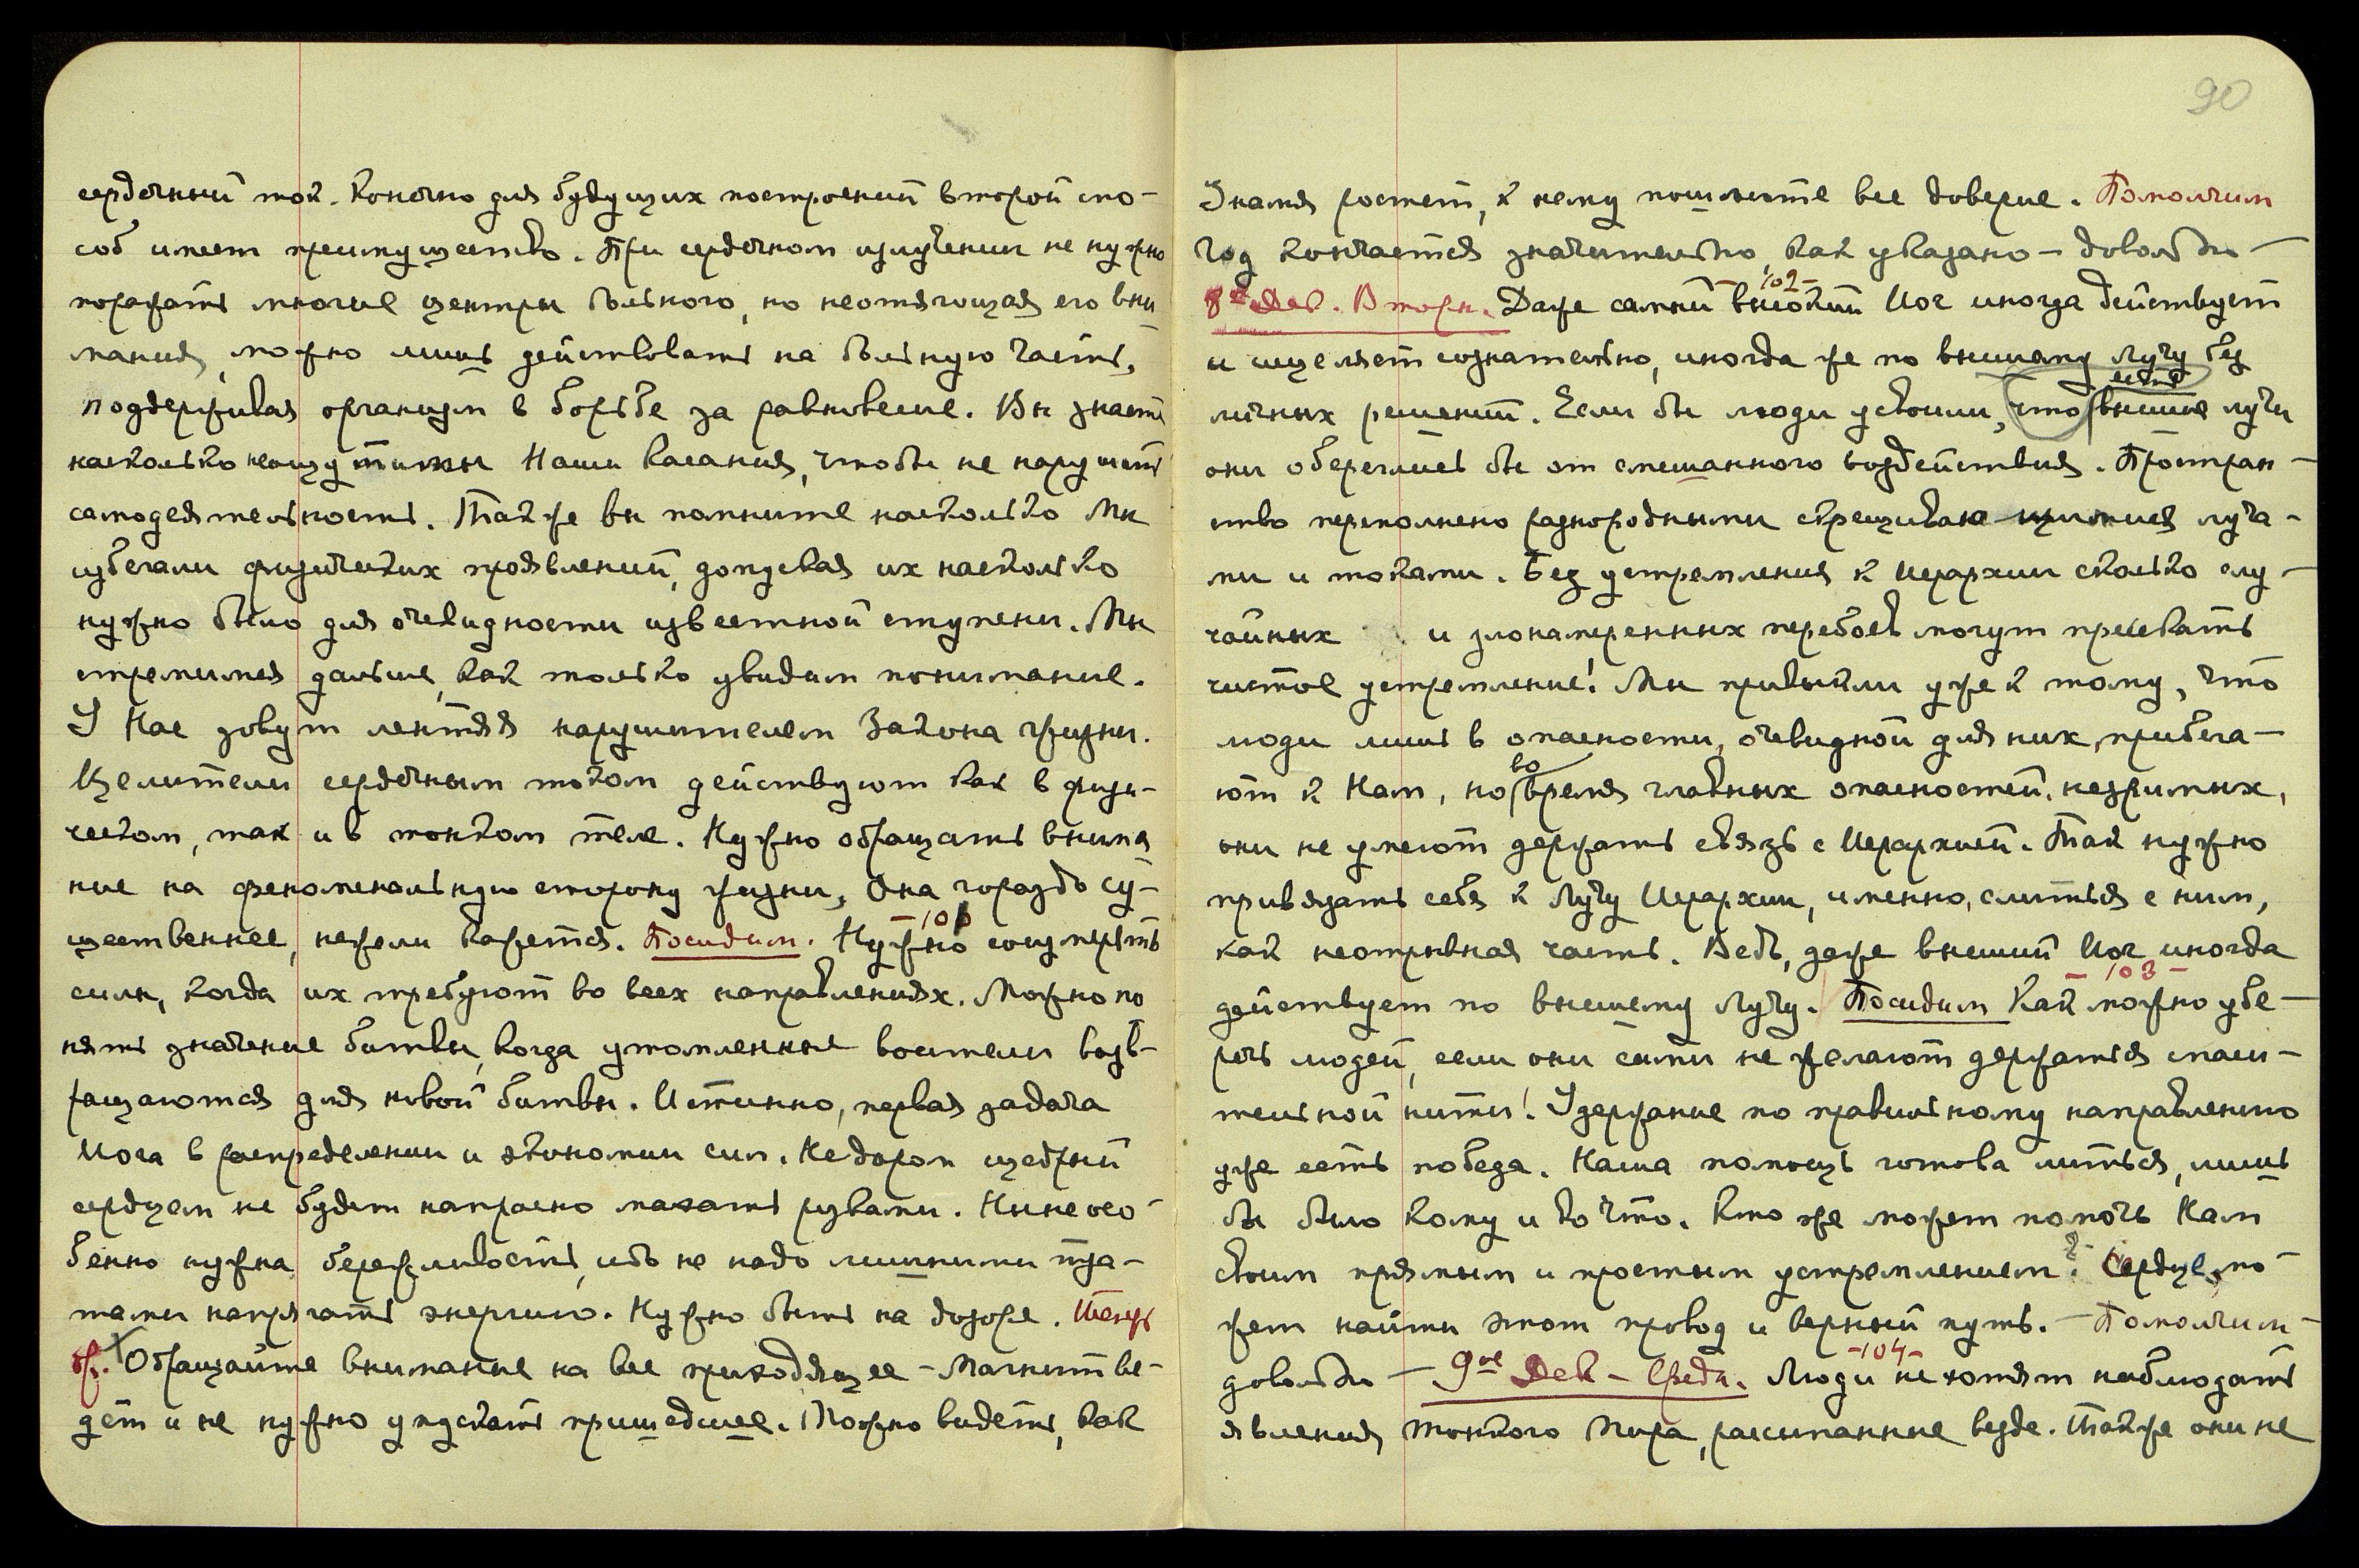 сердечный ток. Конечно для будущих построений второй спо-
соб имеет преимущество. При сердечном излучении не нужно
поражать многие центры больного, но неотягощая его вни
мания, можно лишь действовать на больную часть,
поддерживая организм в борьбе за равновесие. Вы знаете
насколько неощутимы Наши касания, чтобы не нарушить
самодеятельность. Также вы помните насколько Мы
избегали физических проявлений, допуская их насколько
нужно было для очевидности известной ступени. Мы
стремимся дальше, как только увидим понимание.
У Нас зовут лентяя нарушителем Закона жизни.
Целители сердечным током действуют как в физи-
ческом, так и в тонком теле. Нужно обращать внима
ние на феноменальную сторону жизни, Она гораздо су-
щественнее, нежели кажется. Посидим. Нужно соизмерять
силы, когда их требуют во всех направлениях. Можно по
нять значение битвы, когда утомленные воители возв-
ращаются для новой битвы. Истинно, первая задача
Иога в распределении и экономии сил. Недаром щедрый
сердцем не будет напрасно махать руками. Ныне осо-
бенно нужна бережливость, ибо не надо лишними тра-
тами напрягать энергию. Нужно быть на дозоре. Теперь
др. Обращайте внимание на все приходящее – Магнит ве-
дет и не нужно упускать пришедшее. Можно видеть, как
90
Знамя растет, к нему пошлите все доверие. Помолчим
Год кончается значительно, как указано – довольно –
– 102 –
8ое Дек. Вторн. Даже самый высокий Иог иногда действует
и исцеляет сознательно, иногда же по высшему Лучу без
личных решений. Если бы люди усвоили, что есть высшие лучи
они обереглись бы от смешанного воздействия. Простран-
ство переполнено разнородными скрещивающимися луча-
ми и токами. Без устремления к Иерархии сколько слу-
чайных и злонамеренных перебоев могут пресекать
чистое устремление! Мы привыкли уже к тому, что
люди лишь в опасности, очевидной для них, прибега-
ют к Нам, но во время главных опасностей, незримых,
они не умеют держать связь с Иерархией. Так нужно
привязать себя к Лучу Иерархии, именно, слиться с ним,
как неотрывная часть. Ведь, даже высший Иог иногда
– 103 –
действует по высшему Лучу. Посидим Как можно убе-
речь людей, если они сами не желают держаться спаси-
тельной нити! Удержание по правильному направлению
уже есть победа. Наша помощь готова литься, лишь
бы было кому и во что. Кто же может помочь Нам
своим прямым и простым устремлением? Сердце мо
жет найти этот провод и верный путь. – Помолчим –
– 104 –
довольно – 9ое Дек – Среда. Люди не хотят наблюдать
явления Тонкого Мира, рассыпанные везде. Также они не